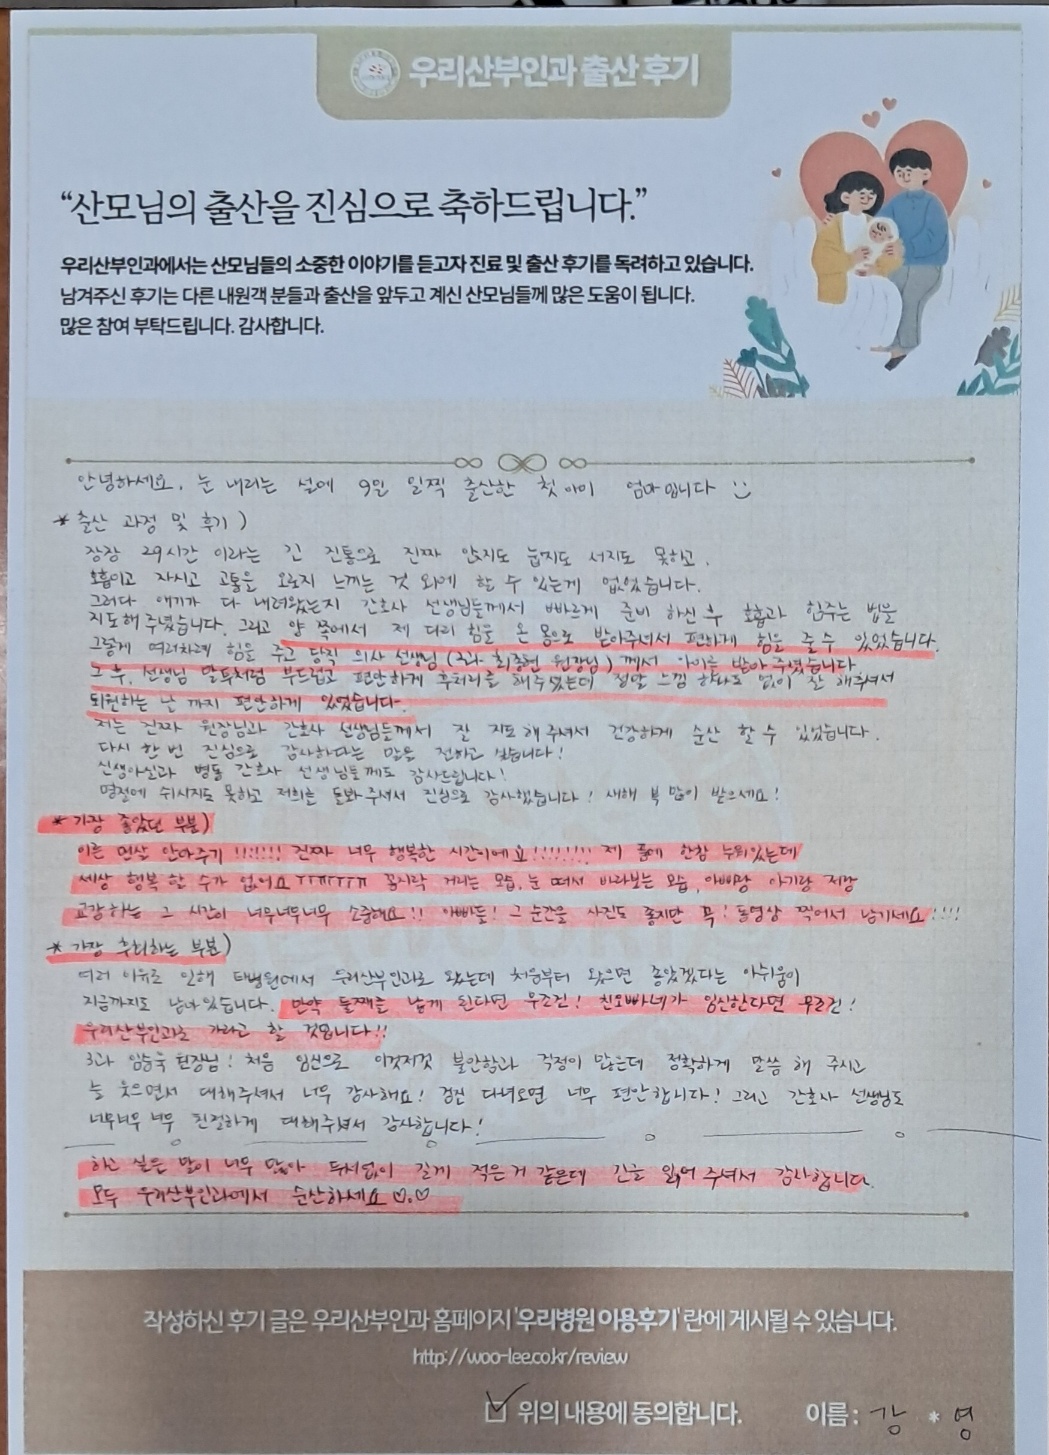 우리산부인과 출산 후기
“산모님의 출산을 진심으로 축하드립니다.”
우리산부인과에서는 산모님들의 소중한 이야기를 듣고자 진료 및 출산 후기를 독려하고 있습니다.
남겨주신 후기는 다른 내원객 분들과 출산을 앞두고 계신 산모님들께 많은 도움이 됩니다.
많은 참여 부탁드립니다. 감사합니다.
안녕하세요. 눈 내리는 설에 9일 일찍 출산한 첫 아이 엄마입니다 :)
* 출산 과정 및 후기 )
장장 29시간 이라는 긴 진통으로 진짜 앉지도 눕지도 서지도 못하고.
호흡이고 자시고 고통을 오로지 느끼는 것 외에 할 수 있는게 없었습니다.
그러다 애기가 다 내려왔는지 간호사 선생님들께서 빠르게 준비 하신 후 호흡과 힘주는 법을
지도해 주셨습니다. 그리고 양 쪽에서 제 다리 힘을 온 몸으로 받아주셔서 편하게 힘을 줄 수 있었습니다.
그렇게 여러차례 힘을 주고 당직 의사 선생님 (3과 최종현 원장님) 께서 아이를 받아 주셨습니다
그 후, 선생님 말투처럼 부드럽고 편안하게 후처리를 해주셨는데 정말 느낌 하나도 없이 잘 해주셔서
퇴원하는 날 까지 편안하게 있었습니다.
저는 진짜 원장님과 간호사 선생님들께서 잘 지도 해 주셔서 건강하게 순산 할 수 있었습니다.
다시 한 번 진심으로 감사하다는 말을 전하고 싶습니다!
신생아실과 병동 간호사 선생님들께도 감사드립니다!
명절에 쉬시지도 못하고 저희를 돌봐 주셔서 진심으로 감사했습니다! 새해 복 많이 받으세요!
* 가장 좋았던 부분)
이른 면살 안아주기 !!!!!!! 진짜 너무 행복한 시간이에요!!!!!!!! 제 품에 한참 누워있는데
세상 행복 할 수가 없어요 ㅠㅠㅠㅠ 꼼지락 거리는 모습, 눈 떠서 바라보는 모습, 아빠랑 아기랑 저랑
교감하는 그 시간이 너무너무너무 소중해요!! 아빠들! 그 순간을 사진도 좋지만 꼭! 동영상 찍어서 남기세요!!!!
* 가장 후회하는 부분)
여러 이유로 인해 타병원에서 우리산부인과로 왔는데 처음부터 왔으면 좋았겠다는 아쉬움이
지금까지도 남아있습니다. 만약 둘째를 낳게 된다면 무조건! 친오빠네가 임신한다면 무조건!
우리산부인과로 가라고 할 것입니다!!
3과 원장님! 처음 임신으로 이것저것 불안함과 걱정이 많은데 정확하게 말씀 해 주시고
늘 웃으면서 대해주셔서 너무 감사해요! 검진 다녀오면 너무 편안합니다! 그리고 간호사 선생님도
너무너무 너무 친절하게 대해주셔서 감사합니다!
하고 싶은 말이 너무 많아 두서없이 길게 적은 거 같은데 긴글 읽어 주셔서 감사합니다.
모두 우리산부인과에서 순산하세요 ♡.♡
작성하신 후기 글은 우리산부인과 홈페이지 '우리병원 이용후기' 란에 게시될 수 있습니다.
http://woo-lee.co.kr/review
위의 내용에 동의합니다. 이름 : 강 * 영